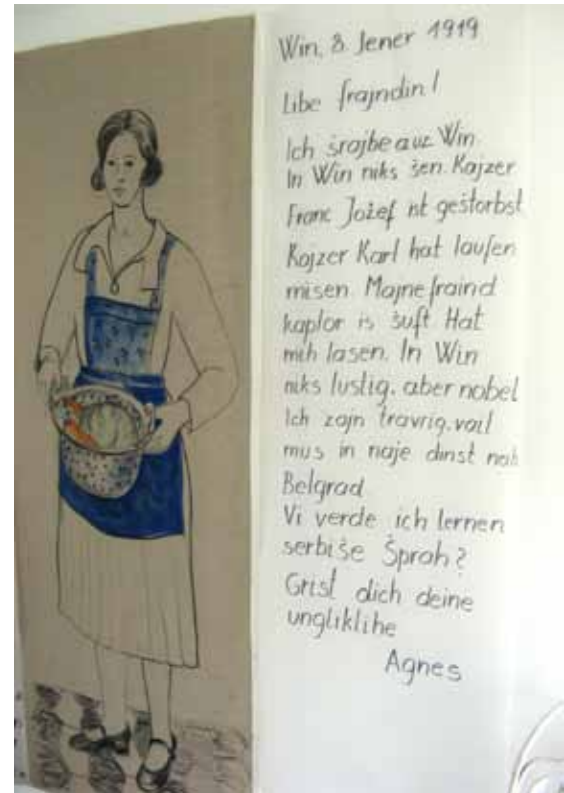 Win, 8. Jener 1919
Libe frajndin!
Ich šrajbe auz Win.
In Win niks šen. Kajzer
Franc Jožef ist gestorbst
Kajzer Karl hat laufen
misen. Majne fraind
kaplor is šuft. Hat
mih lasen. In Win
niks lustig, aber nobel
Ich zajn travrig, vail
mus in naje dinst nah
Belgrad
Vi verde ich lernen
serbiše Šprah?
Grist dich deine
ungliklihe
Agnes